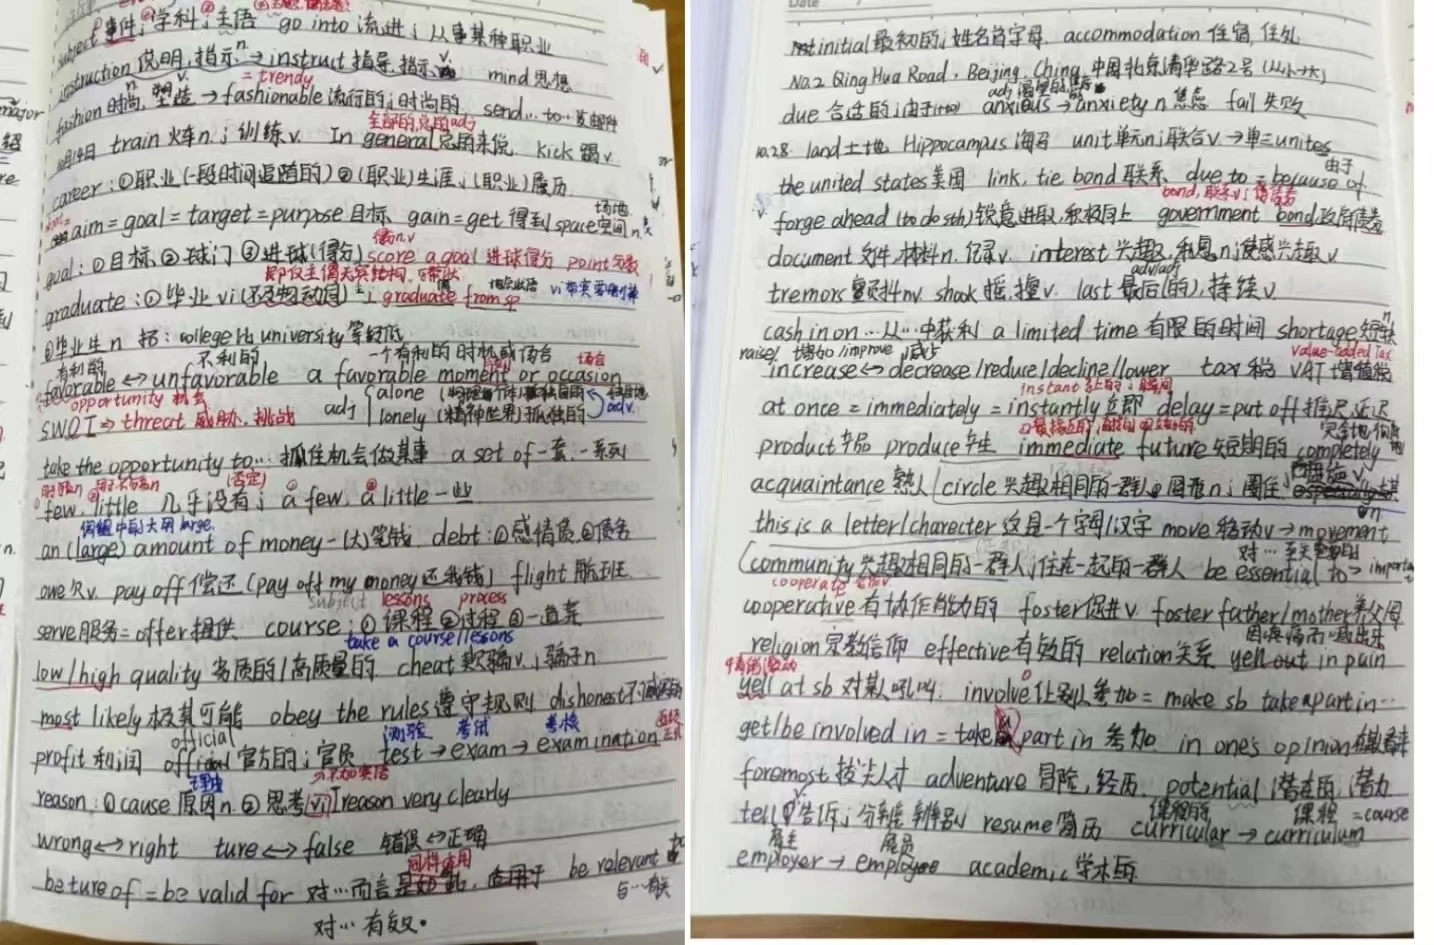 subject 事件;学科;主语 go into 流进;从事某种职业
instruction 说明,指示n → instruct 指导,指示v mind 思想
= trendy
fashion 时尚n,塑造v → fashionable 流行的;时尚的 send...to...发邮件
全部的,总的adj
10月14日 train 火车n.;训练v. In general 总的来说 kick 踢v
career:①职业(一段时间追随的)②(职业)生涯,(职业)履历
aim=goal=target=purpose目标 gain=get 得到 space空间n.
场地
goal:①目标②球门③进球(得分) score a goal 进球得分 point 分数
graduate:①毕业vi ; graduate from sp
地点状语
②毕业生n 指:college比university等级低
有利的 不利的 一个有利的时机或场合
favorable ↔ unfavorable a favorable moment or occasion
场合
opportunity 机会
SWOT ⇒ threat 威胁,挑战 adj alone
lonely (精神世界)孤独的 adv.
take the opportunity to...抓住机会做某事 a set of 一套,一系列
(否定)
few,little 几乎没有; a few, a little 一些
an (large) amount of money 一(大)笔钱 debt:①感情债②债务
owe 欠v. pay off 偿还 (pay off my money还我钱) flight 航班
subject lessons process
serve服务=offer提供 course:①课程②过程③一道菜
take a course/lessons
low/high quality 劣质的/高质量的 cheat 欺骗v.;骗子n
most likely 极其可能 obey the rules 遵守规则 dishonest
official 测验 考试 考核
profit 利润 official 官方的;官员 test → exam → examination
理由 →不加宾语
reason:①cause 原因n.②思考vi I reason very clearly
wrong ↔ right ture ↔ false 错误↔正确
同样适用
be ture of = be valid for 对…而言 适用于 be relevant to
对…有效. 与…有关
initial 最初的;姓名首字母 accommodation 住宿,住处
No.2 Qing Hua Road, Beijing, China 中国北京清华路2号(从小→大)
due 合适的;由于 anxious → anxiety n 焦虑 fail 失败
10.28. land 土地 Hippocampus 海马 unit 单元n;联合v →单三unites
由于
the united states美国 link, tie bond 联系 due to = because of
bond,联系v;债券
forge ahead (to do sth)锐意进取,积极向上 government bond政府债券
document 文件,材料n.记录v. interest 兴趣,利息n;使感兴趣v
adv/adj
tremors 颤抖nv shook 摇,撞v. last 最后(的),持续v
cash in on…从…中获利 a limited time 有限的时间 shortage短缺n
raise 增加/improve 减少 value-added tax
increase ↔ decrease/reduce/decline/lower tax 税 VAT 增值税
instant 立刻的;瞬间
at once = immediately = instantly 立即 delay=put off 推迟,延迟
product产品 produce产生 immediate future 短期的 completely
acquaintance 熟人 circle 兴趣相同的一群人;圆形n;圈住
this is a letter/charecter 这是一个字母/汉字 move 移动v → movement n
对…至关重要的
community 兴趣相同的一群人;住在一起的一群人 be essential to
cooperate 合作v
cooperative 有协作能力的 foster促进v foster father/mother 养父/母
因疼痛而喊出来
religion 宗教信仰 effective 有效的 relation关系 yell out in pain
yell at sb 对某人吼叫. involve 让别人参加 = make sb take a part in…
get/be involved in = take part in 参加 in one's opinion
foremost 拔尖人才 adventure 冒险,经历. potential 潜在的,潜力
课程的 课程 =course
tell 告诉;分辨,辨别 resume 简历 curricular → curriculum
雇主 雇员
employer → employee academic 学术的